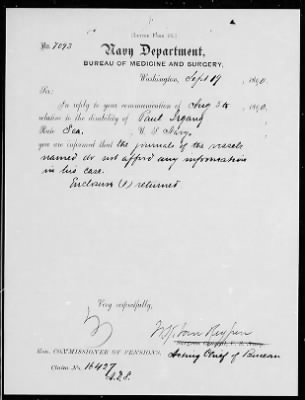 No. 7093
Navy Department,
BUREAU OF MEDICINE AND SURGERY,
Washington, Sept 19, 1890.
Sir:
In reply to your communication of Aug 5th, 1890,
relative to the disability of Paul Irgang
Rate Sea. , U. S. Navy,
you are informed that the journals of the vessels
named do not afford any information
in his case.
Enclosure (1) returned
Very respectfully,
W K Van Reypen
Acting Chief of Bureau
Hon. COMMISSIONER OF PENSIONS,
Claim No. 16427